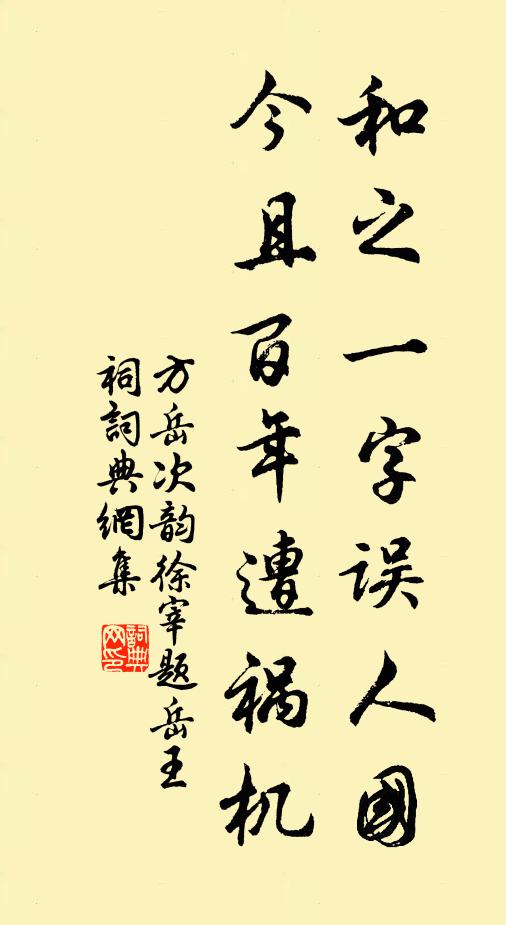 和之一字误人國
今且百年遭祸机
方岳次韵徐宰题岳王
祠詞典網集
詞典
网印